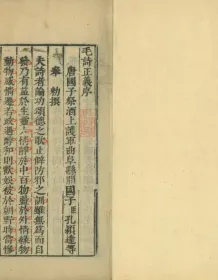 毛詩正義序
唐國子祭酒上護軍曲阜縣開國子臣孔穎達等
奉 勅撰
夫詩者論功頌德之歌止僻防邪之訓雖無為而自
發乃有益於生靈六情靜於中百物盪於外情緣物
動物感情遷若政遇醇和則歡娛被於朝野時當慘